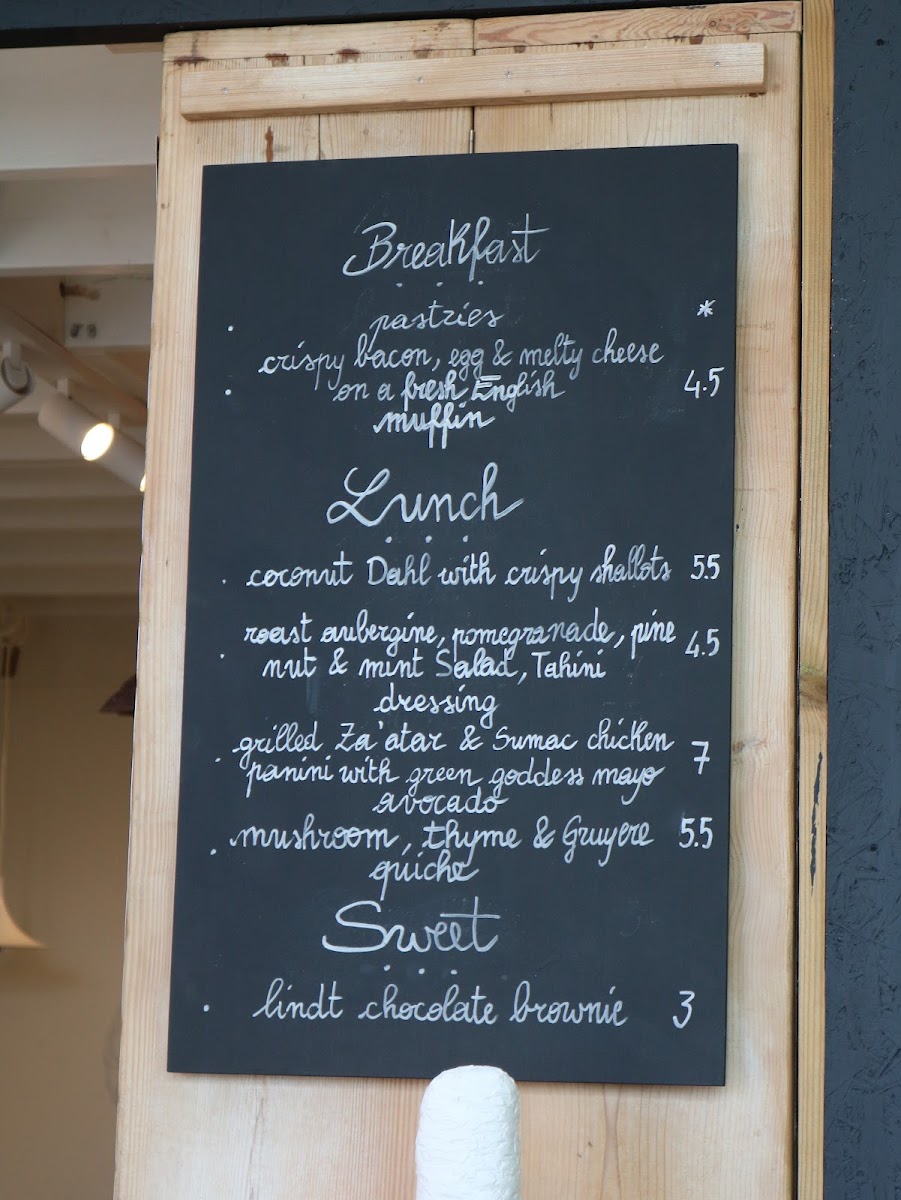 Breakfast
. pastries *
crispy bacon, egg & melty cheese
. on a fresh English 4.5
muffin
Lunch
. coconut Dahl with crispy shallots 5.5
roast aubergine, pomegranade, pine
. nut & mint Salad, Tahini 4.5
dressing
grilled Za'atar & Sumac chicken
. panini with green goddess mayo 7
avocado
. mushroom, thyme & Gruyere 5.5
quiche
Sweet
. lindt chocolate brownie 3